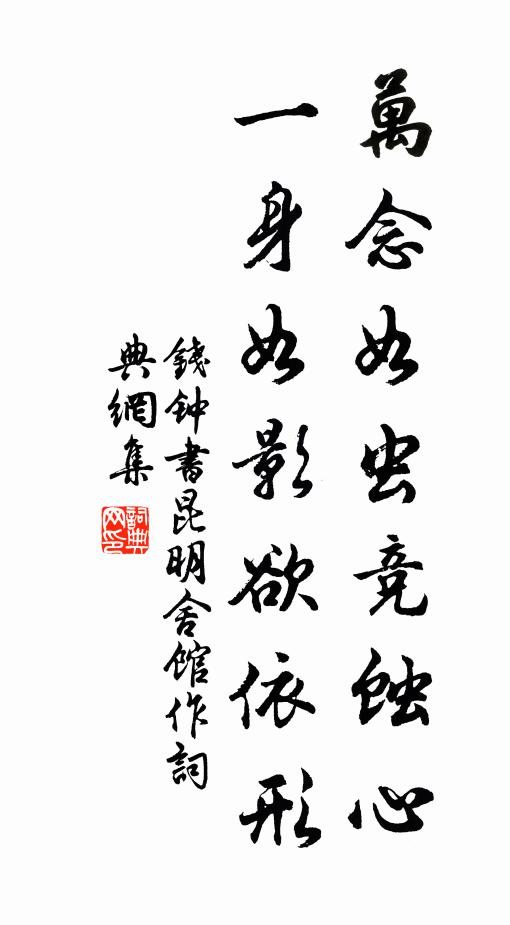 萬念如虫竞蚀心
一身如影欲依形
錢钟書昆明舍馆作詞
典網集
詞典
网印